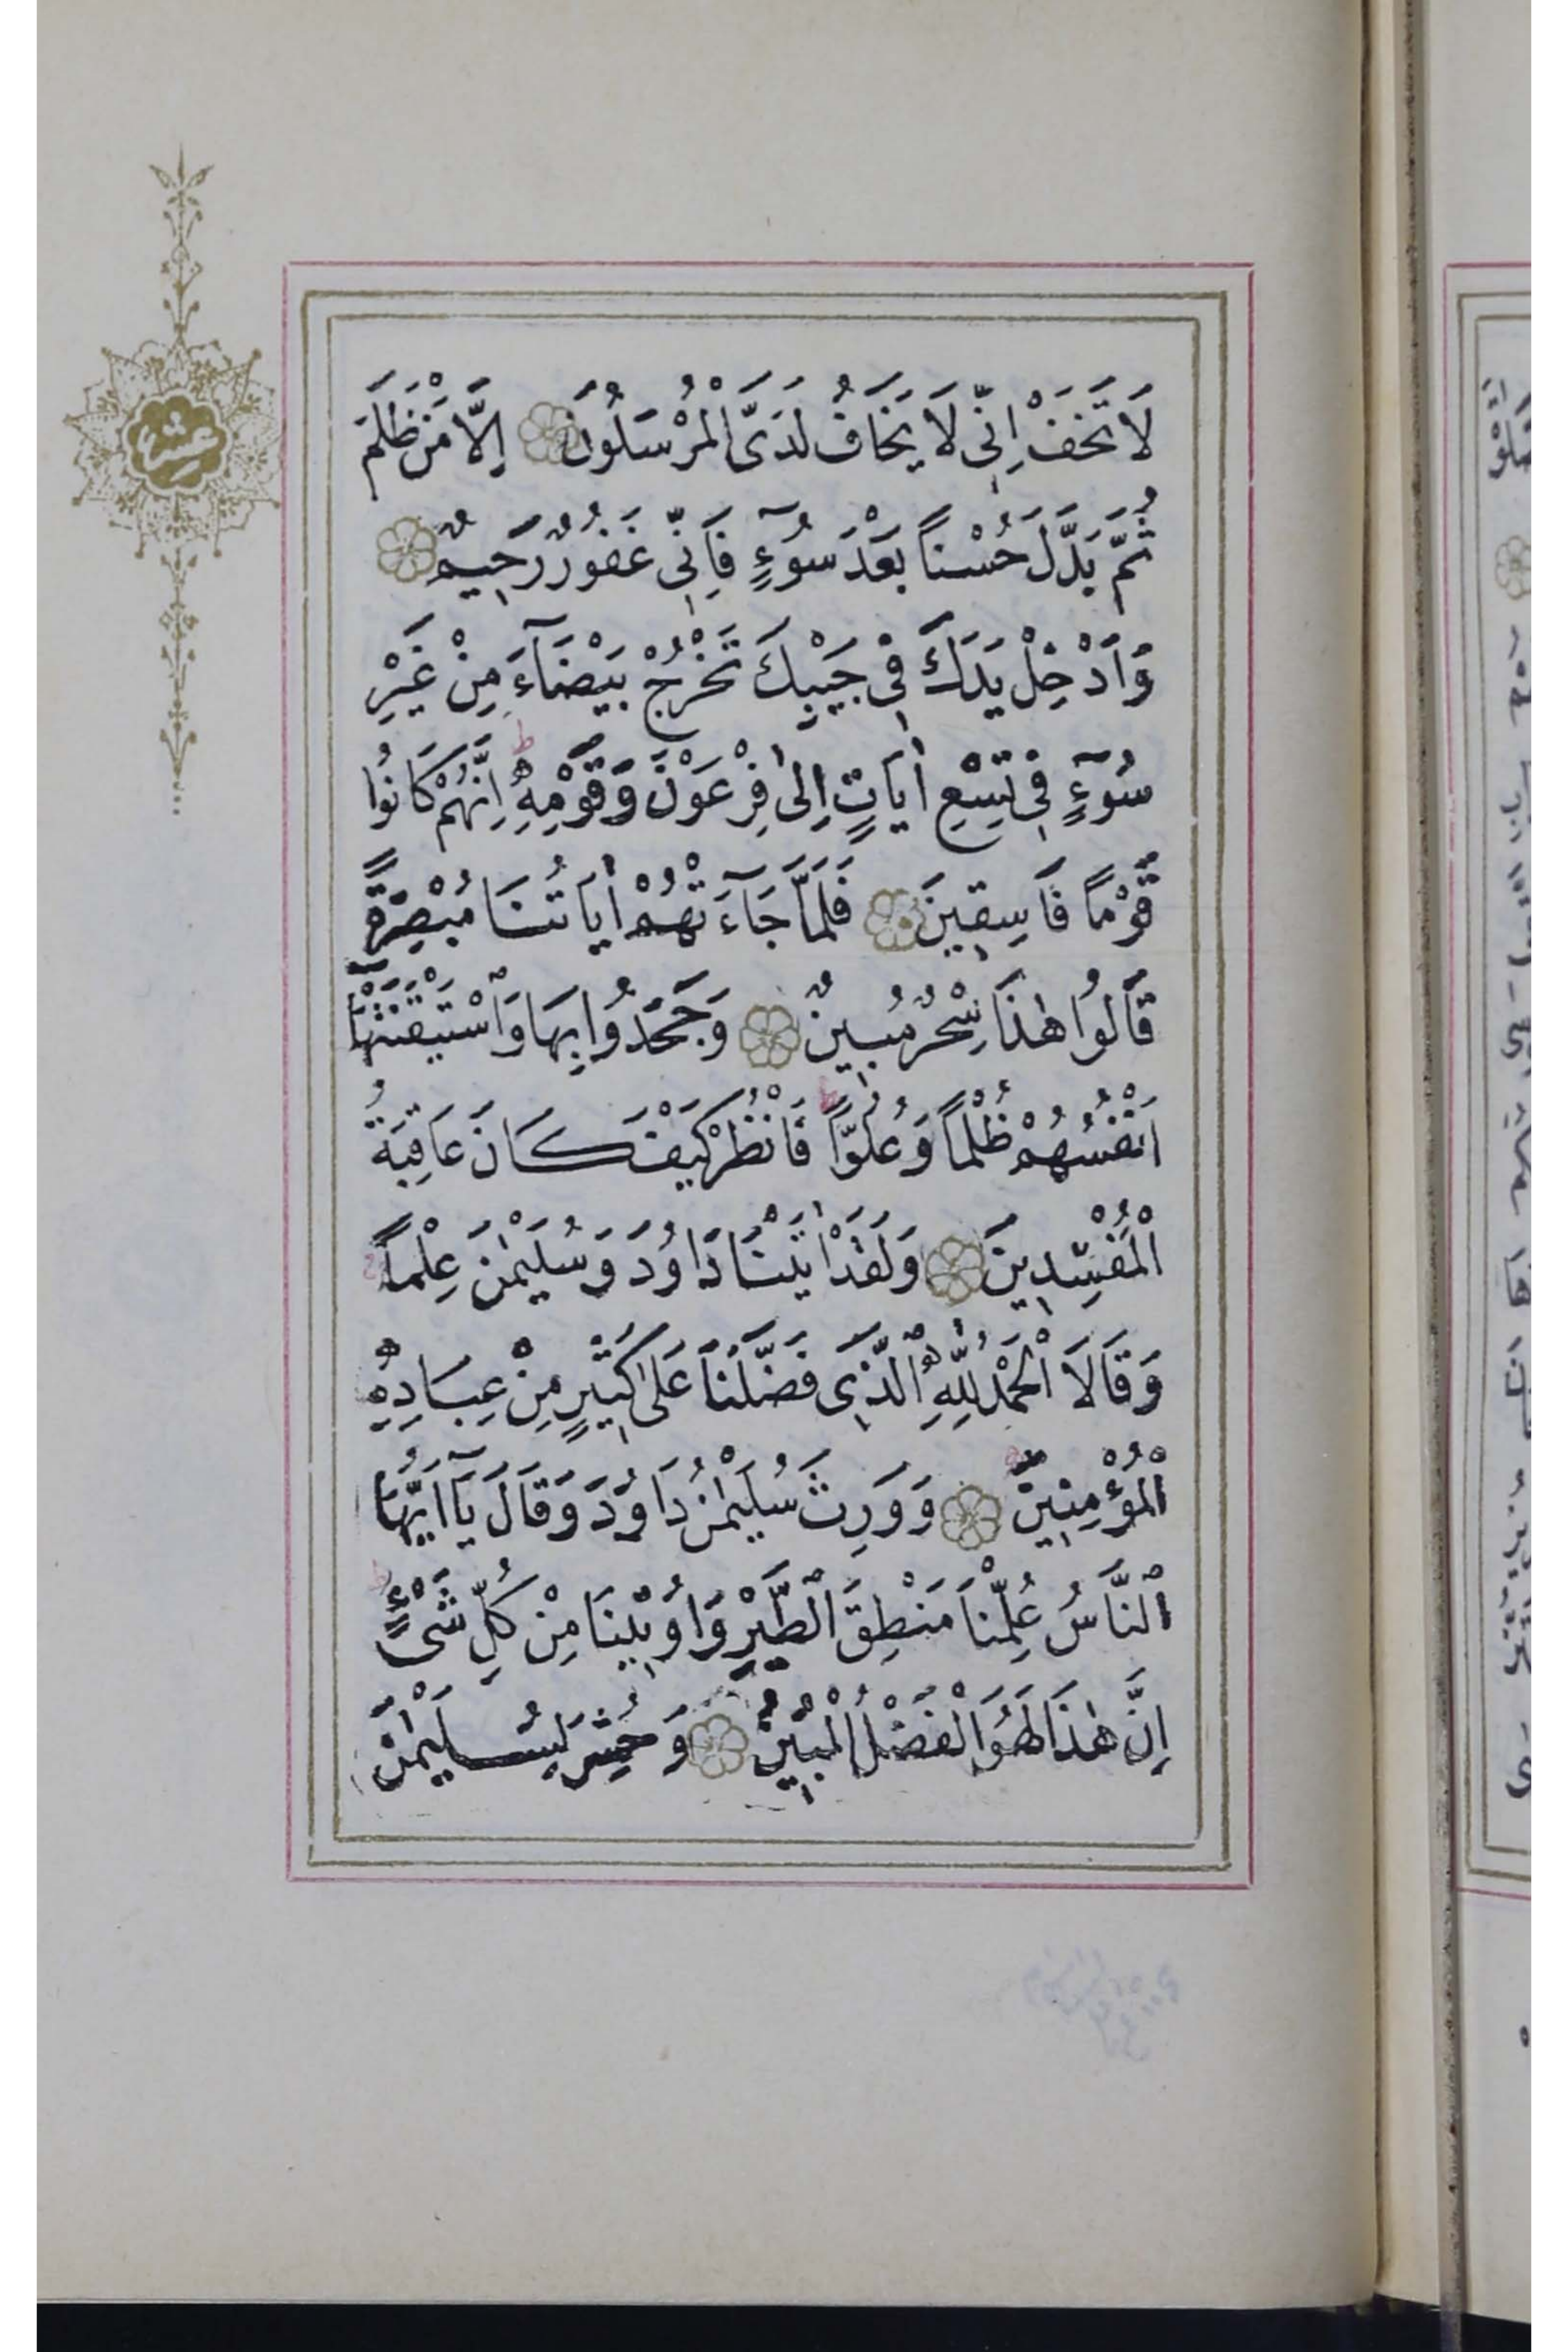 لَا تَخَفْ اِنِّى لَا يَخَافُ لَدَىَّ الْمُرْسَلُونَ اِلَّا مَنْ ظَلَمَ
ثُمَّ بَدَّلَ حُسْناً بَعْدَ سُوٓءٍ فَاِنِّى غَفُورٌ رَحِيمٌ
وَاَدْخِلْ يَدَكَ فِى جَيْبِكَ تَخْرُجْ بَيْضَآءَ مِنْ غَيْرِ
سُوٓءٍ فِى تِسْعِ اٰيَاتٍ اِلٰى فِرْعَوْنَ وَقَوْمِهِ اِنَّهُمْ كَانُوا
قَوْماً فَاسِقِينَ فَلَمَّا جَآءَتْهُمْ اٰيَاتُنَا مُبْصِرَةً
قَالُوا هٰذَا سِحْرٌ مُبِينٌ وَجَحَدُوا بِهَا وَاسْتَيْقَنَتْهَٓا
اَنْفُسُهُمْ ظُلْماً وَعُلُوّاً فَانْظُرْ كَيْفَ كَانَ عَاقِبَةُ
الْمُفْسِدِينَ وَلَقَدْ اٰتَيْنَا دَاوُدَ وَسُلَيْمٰنَ عِلْماً
وَقَالَا الْحَمْدُ لِلّٰهِ الَّذِى فَضَّلَنَا عَلٰى كَثِيرٍ مِنْ عِبَادِهِ
الْمُؤْمِنِينَ وَوَرِثَ سُلَيْمٰنُ دَاوُدَ وَقَالَ يَٓا اَيُّهَا
النَّاسُ عُلِّمْنَا مَنْطِقَ الطَّيْرِ وَاُوتِينَا مِنْ كُلِّ شَىْءٍ
اِنَّ هٰذَا لَهُوَ الْفَضْلُ الْمُبِينُ وَحُشِرَ لِسُلَيْمٰنَ